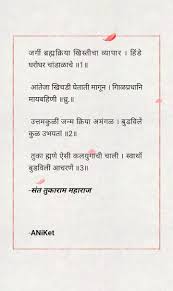 जगीं ब्रह्मक्रिया खिस्तीचा व्यापार । हिंडे
घरोघर चांडाळाचे ॥1॥
आंतेजा खिचडी घेताती मागून । गिाळप्रधानि
मायबहिणी ॥ध्रु.॥
उत्तमकुळीं जन्म क्रिया अमंगळ । बुडविलें
कुळ उभयतां ॥2॥
तुका म्हणे ऐसी कलयुगाची चाली । स्वार्थे
बुडविली आचरणें ॥3॥
-संत तुकाराम महाराज
-ANiKet